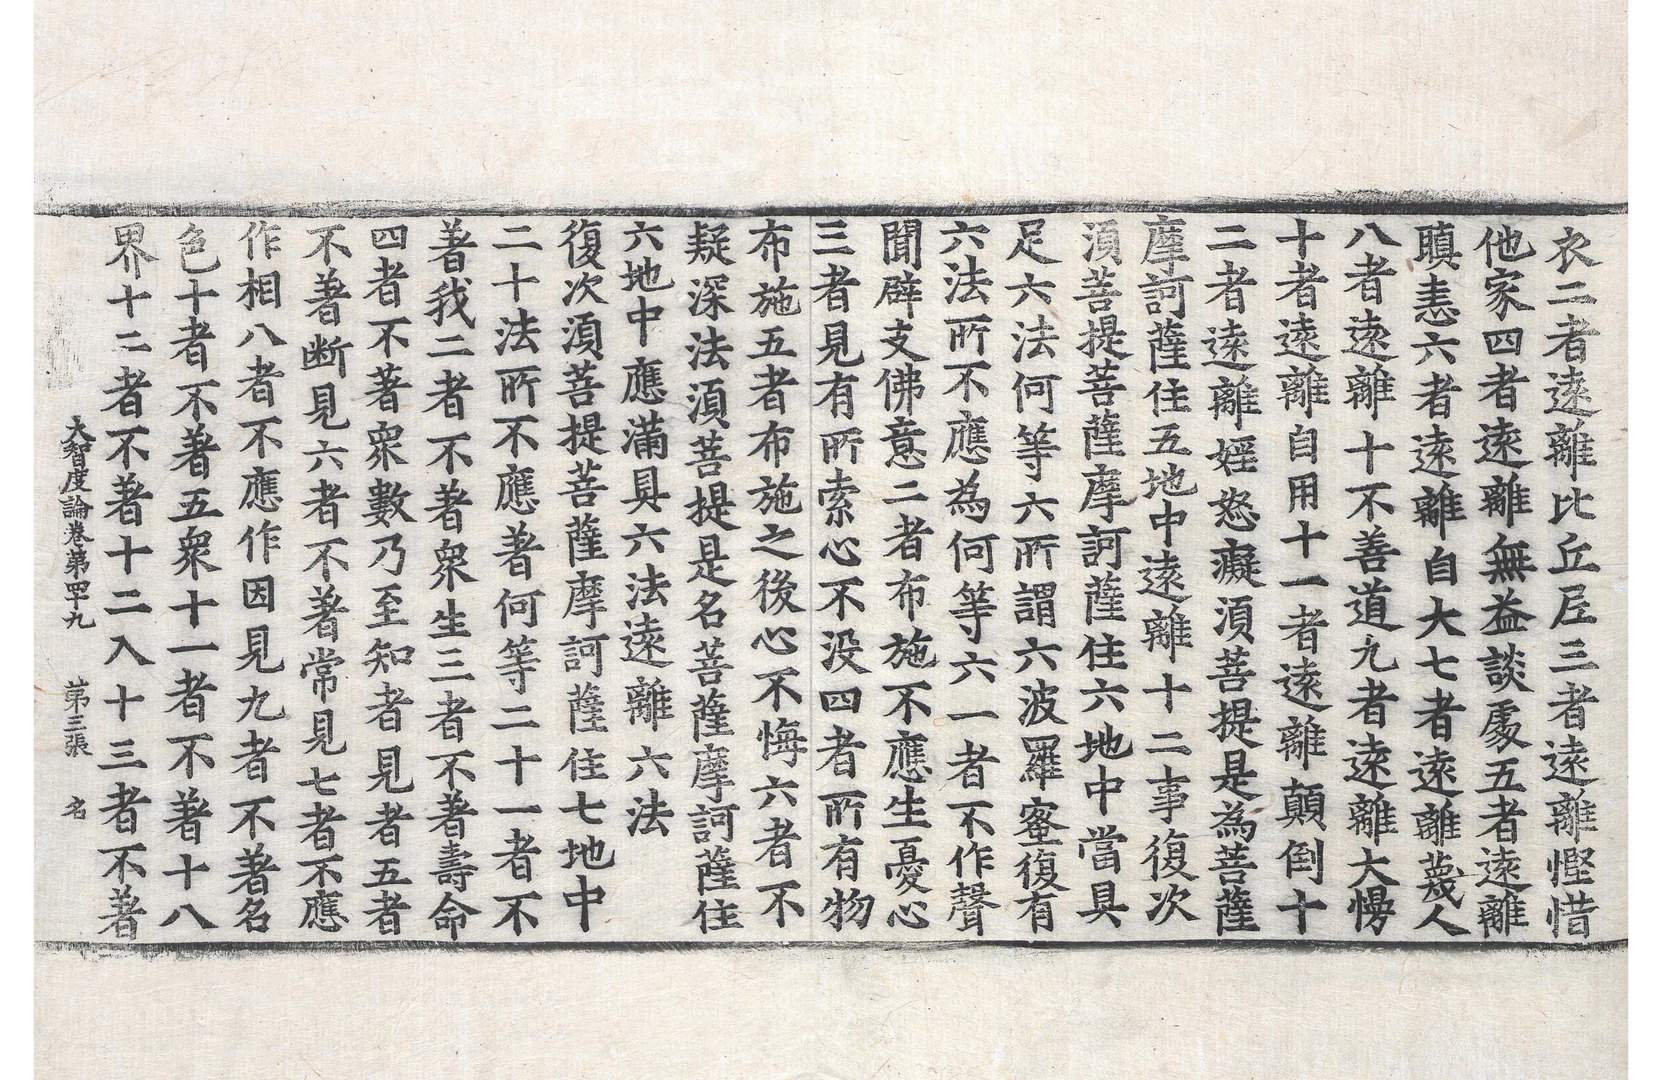 衣二者遠離比丘尼三者遠離慳惜
他家四者遠離無益談處五者遠離
瞋恚六者遠離自大七者遠離蔑人
八者遠離十不善道九者遠離大慢
十者遠離自用十一者遠離顛倒十
二者遠離婬怒癡須菩提是為菩薩
摩訶薩住五地中遠離十二事復次
須菩提菩薩摩訶薩住六地中當具
足六法何等六所謂六波羅蜜復有
六法所不應為何等六一者不作聲
聞辟支佛意二者布施不應生憂心
三者見有所索心不没四者所有物
布施五者布施之後心不悔六者不
疑深法須菩提是名菩薩摩訶薩住
六地中應滿具六法遠離六法
復次須菩提菩薩摩訶薩住七地中
二十法所不應著何等二十一者不
著我二者不著衆生三者不著壽命
四者不著衆數乃至知者見者五者
不著断見六者不著常見七者不應
作相八者不應作因見九者不著名
色十者不著五衆十一者不著十八
界十二者不著十二入十三者不著
大智度論卷第四十九　第三張　名